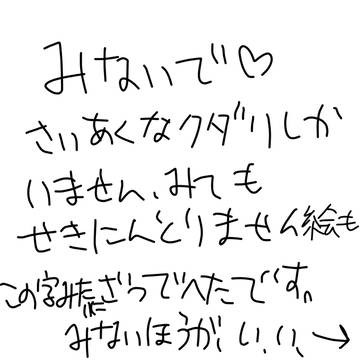 みないで♡
さいあくなクダリしか
いません、みても
せきにんとりません絵も
この字みたいにざつでへたです。
みないほうが、いい、→